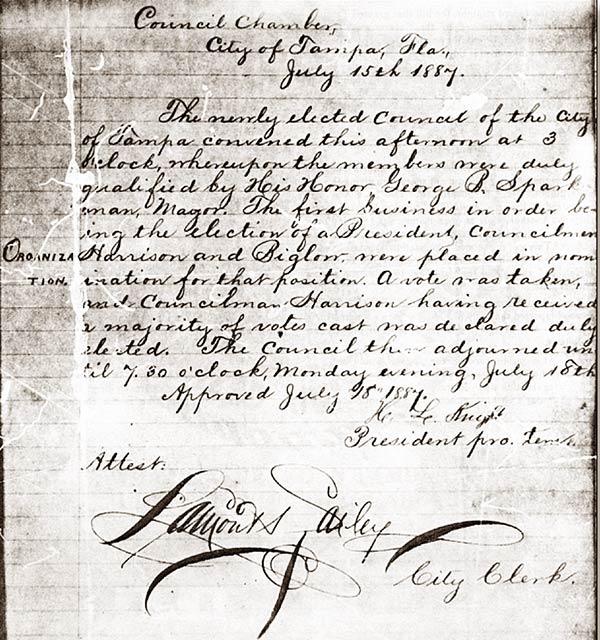 Council Chamber,
City of Tampa, Fla.,
July 15th 1887.
The newly elected Council of the City
of Tampa convened this afternoon at 3
o'clock, whereupon the members were duly
qualified by His Honor, George B. Spark-
man, Mayor. The first business in order be-
ing the election of a President, Councilmen
ORGANIZA
TION.
Harrison and Biglow, were placed in nom
ination for that position. A vote was taken,
and Councilman Harrison having received
a majority of votes cast was declared duly
elected. The Council then adjourned un
til 7.30 o'clock, Monday evening, July 18th
Approved July 18" 1887.
H. L. Knight
President pro. tem.
Attest:
Bailey
City Clerk.